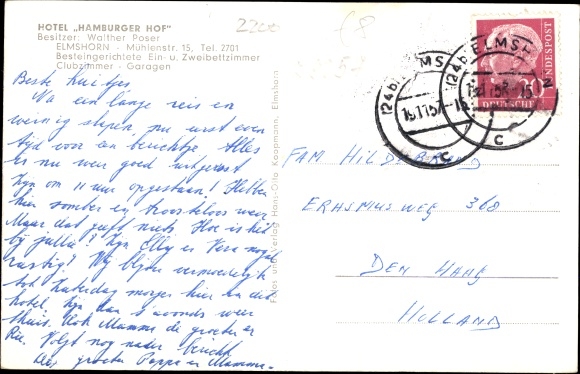 HOTEL „HAMBURGER HOF"
Besitzer: Walther Poser
ELMSHORN - Mühlenstr. 15, Tel. 2701
Besteingerichtete Ein- u. Zweibettzimmer
Clubzimmer - Garagen
2200
Beste
Na een lange reis en
weinig slapen, nu eerst even
tijd voor een berichtje. Alles
is nu weer goed uitgerust
Zijn om 11 uur opgestaan! Hebben
hier somber en troosteloos weer
Maar dat geeft niets. Hoe is het
bij jullie? Zijn Elly en Vera nogal
rustig? Wij blijven vermoedelijk
tot Zaterdag morgen hier in dit
hotel, zijn dan s'avonds weer
thuis. Ook Mamma de groeten en
Rie. Volgt nog nader bericht
groeten Pappa en Mamma.
Fotos und Verlag Hans-Otto Koopmann, Elmshorn
(24b) ELMSH
c
(24b) ELMSH
c
DEUTSCHE BUNDESPOST
20
FAM HILDEBRAND
ERASMUSWEG 368
DEN HAAG
HOLLAND